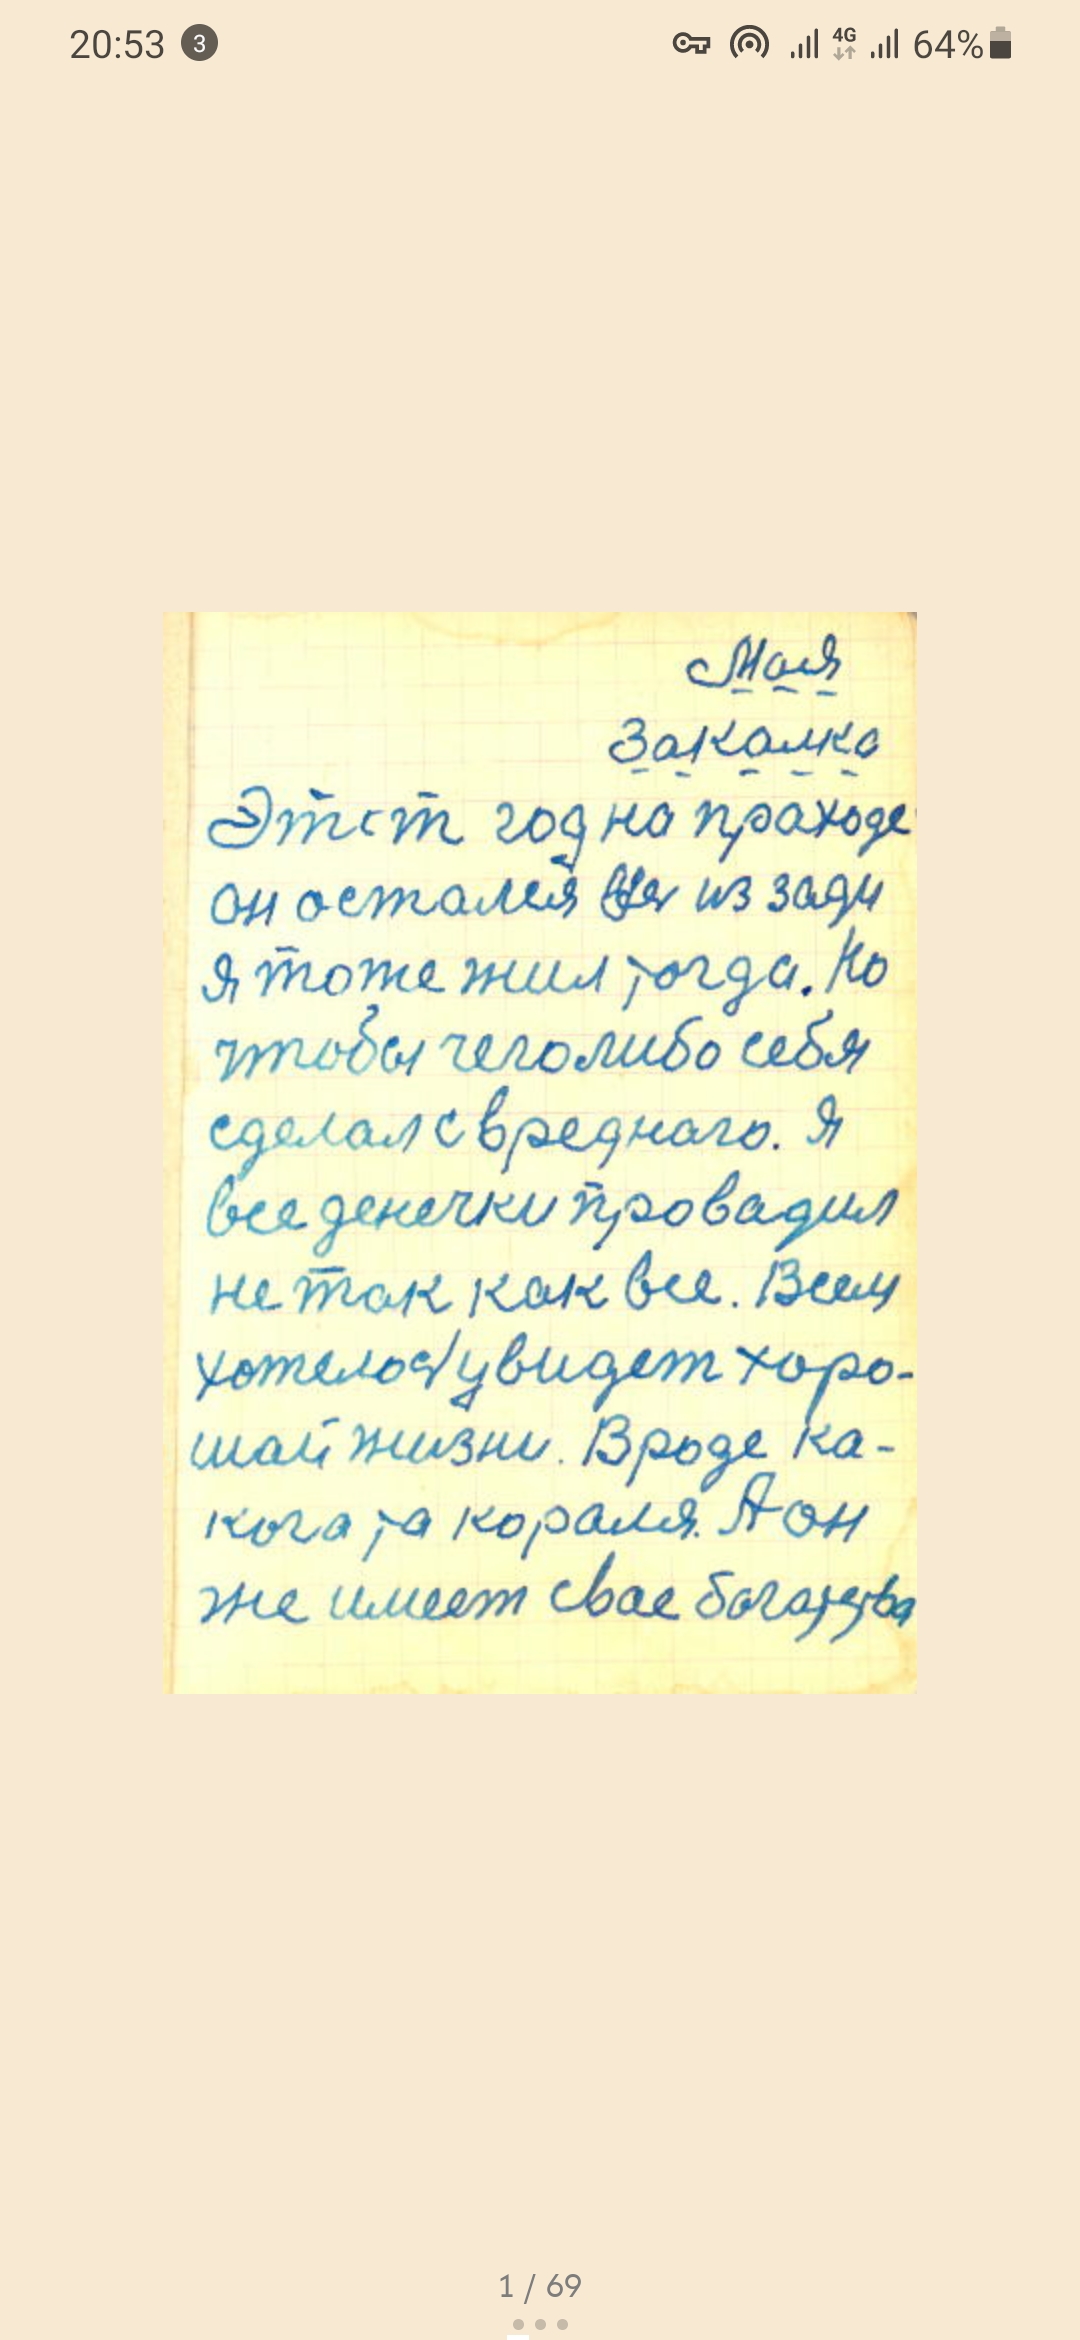 20:53 3 4G 64%
Моя
Закалка
Этот год на праходе
он остался из зади
я тоже жил тогда. Но
чтобы чеголибо себя
сделал с вреднаго. Я
все денечки провадил
не так как все. Всем
хотелось увидет хоро-
шай жизни. Вроде ка-
кога та кораля. А он
же имеет свае богатства
1 / 69